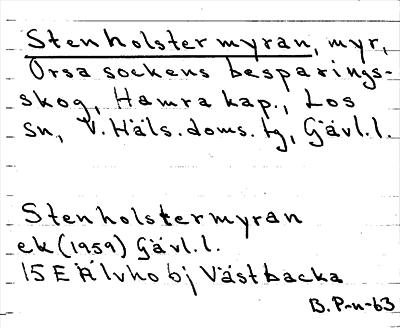 Stenholstermyran, myr,
Orsa sockens besparings-
skog, Hamra kap., Los
sn, V. Häls. doms. tg, Gävl.l.
Stenholstermyran
ek (1959) Gävl.l.
15 E Älvho bj Västbacka
B. P-n-63